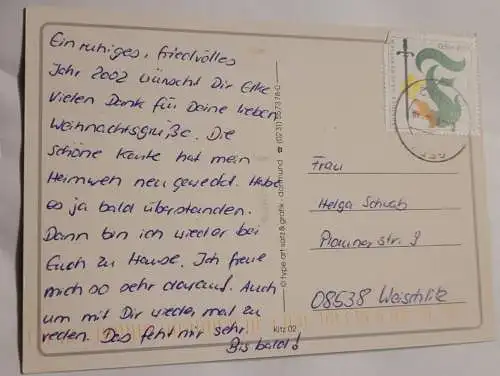 Ein ruhiges, friedvolles
Jahr 2002 wünscht Dir Elke
Vielen Dank für Deine lieben
Weihnachtsgrüße. Die
schöne Karte hat mein
Heimweh neu geweckt. Habe
es ja bald überstanden.
Dann bin ich wieder bei
Euch zu Hause. Ich freue
mich so sehr darauf. Auch
um mit Dir wieder mal zu
reden. Das fehlt mir sehr.
Bis bald!
© type art satz & grafik · dortmund ☎ (0231)
Kitz 02
Frau
Helga Schwab
Plauener Str. 9
08538 Weischlitz